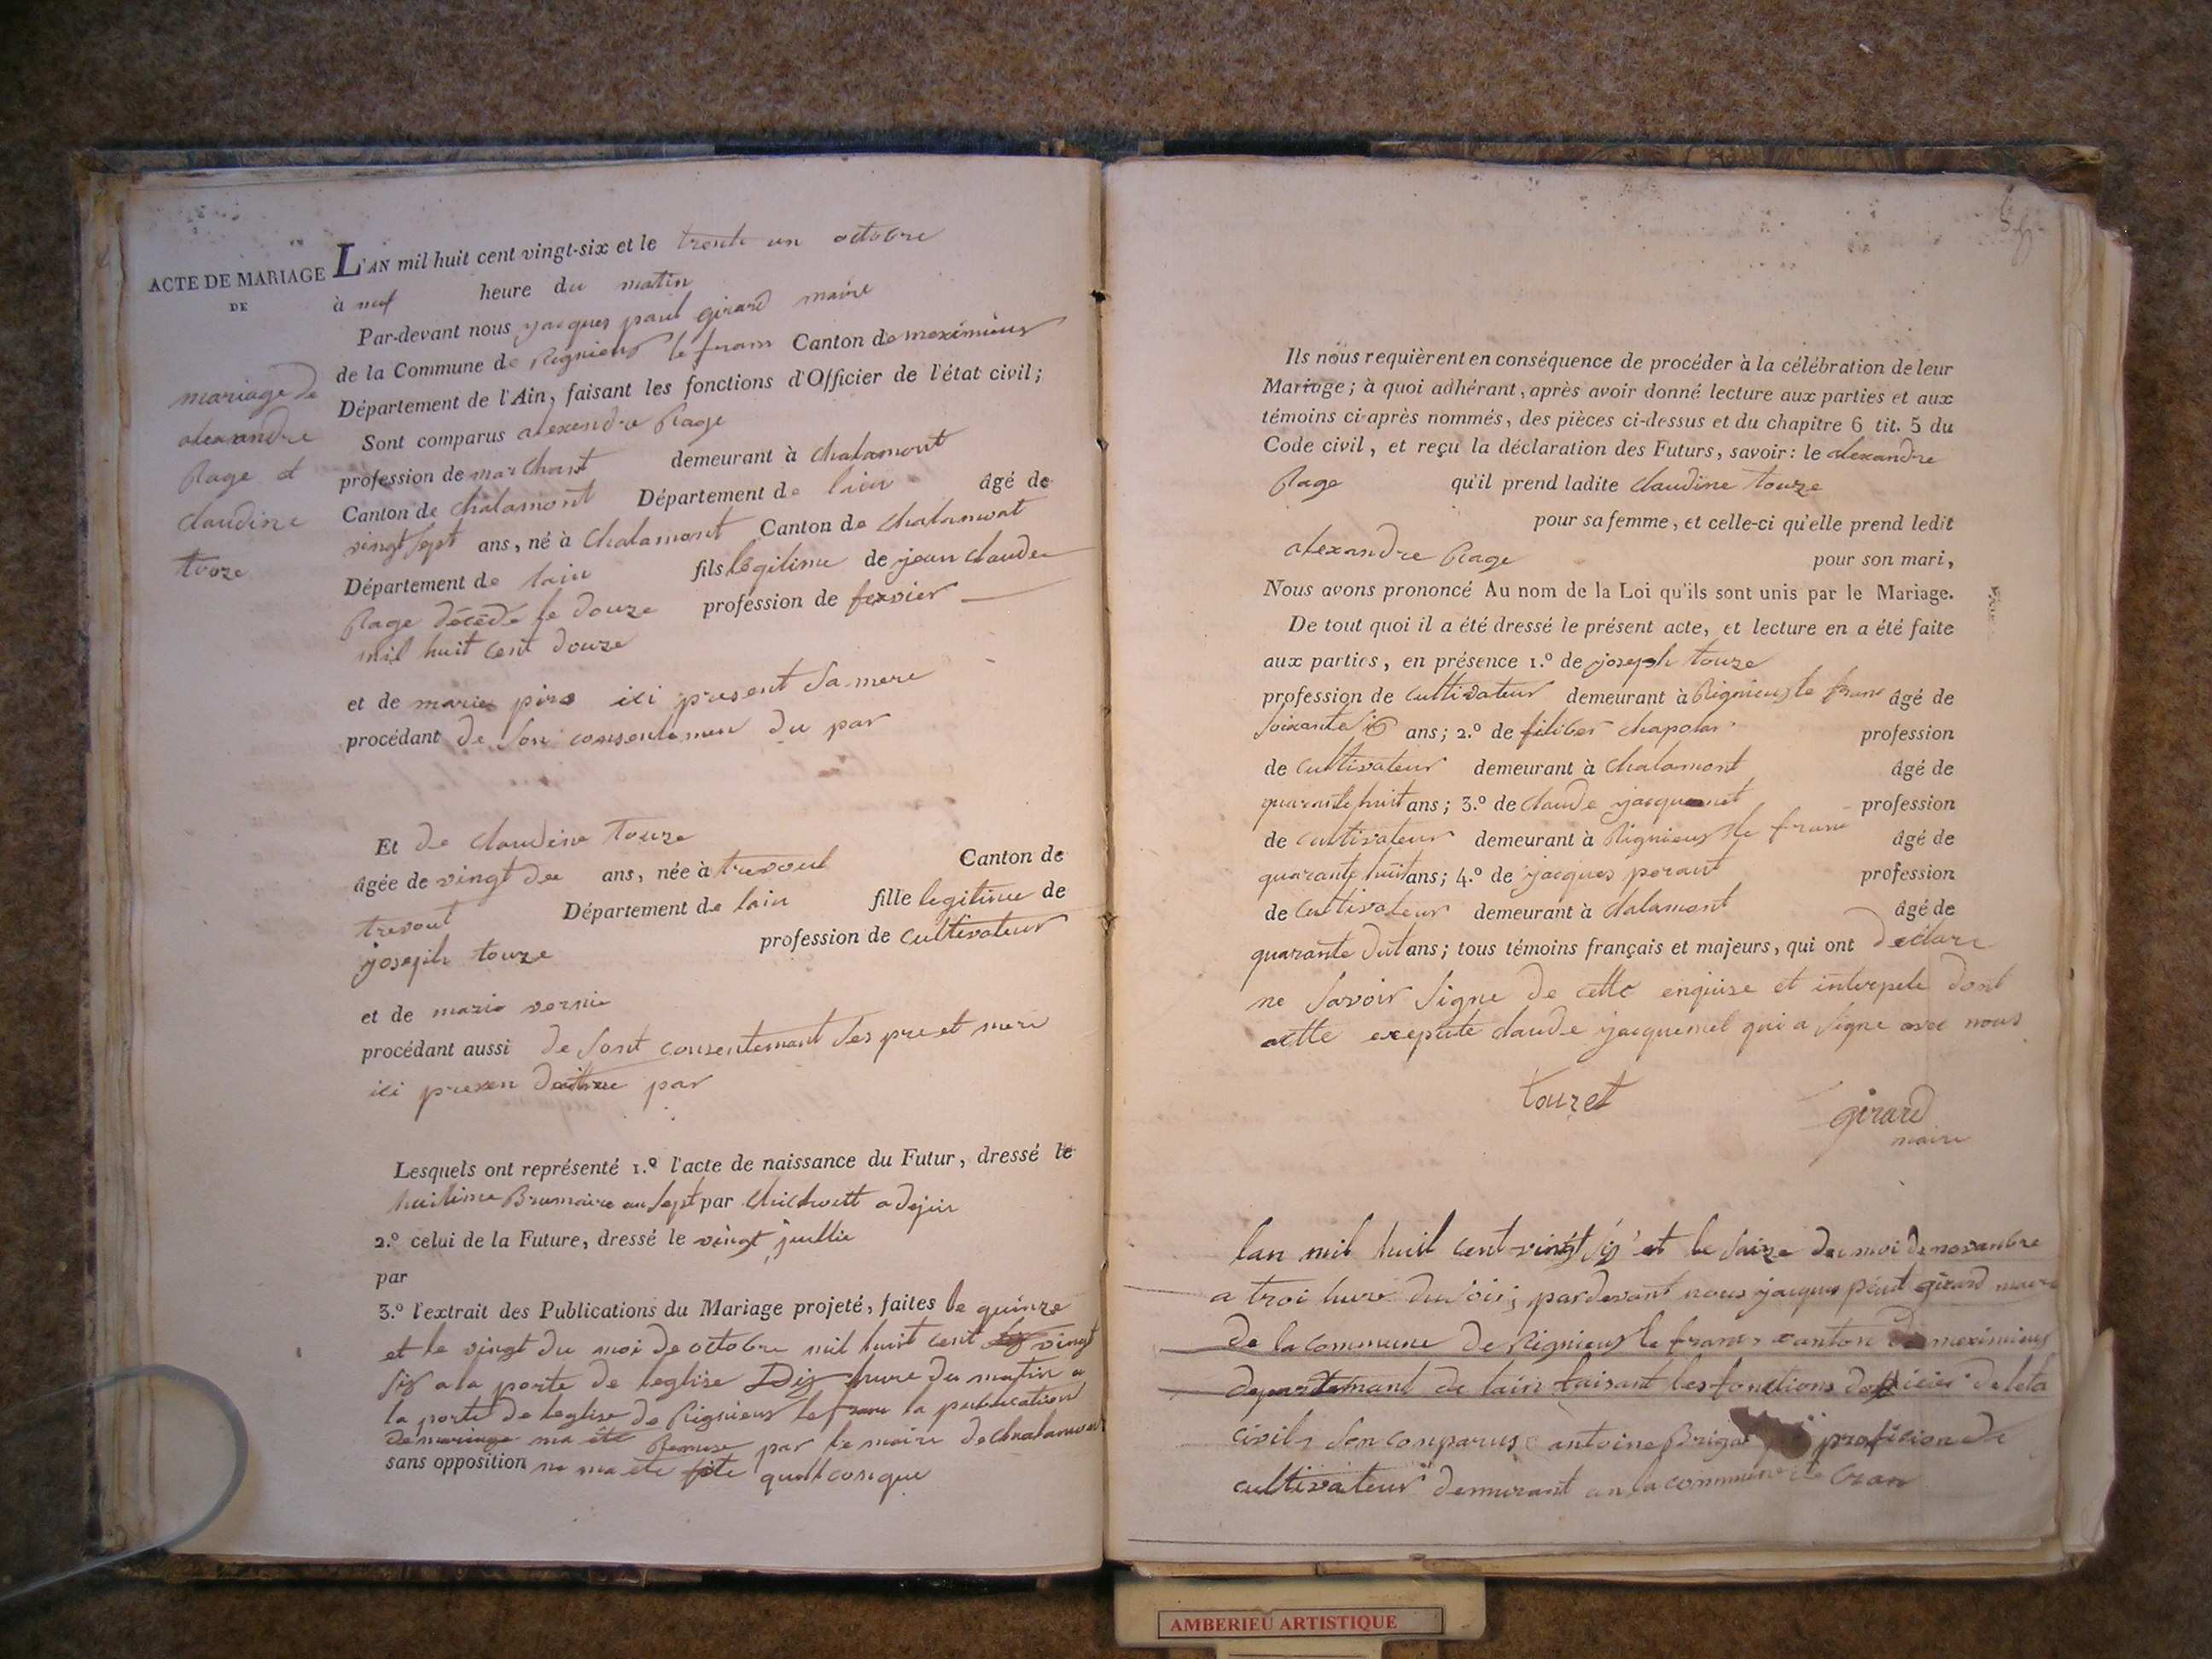 ACTE DE MARIAGE
DE
mariage de
alexandre
Rage et
claudine
touze
L'AN mil huit cent vingt-six et le trente un octobre
à neuf heure du matin
Par-devant nous jacques paul girard maire
de la Commune de Rignieux le franc Canton de meximieux
Département de l'Ain, faisant les fonctions d'Officier de l'état civil;
Sont comparus alexendre Rage
profession de marchant demeurant à chalamont
Canton de chalamont Département de lain âgé de
vingt sept ans, né à Chalamont Canton de chalamont
Département de lain fils legitime de jean claude
Rage décédé le douze profession de
mil huit cent douze
et de marie ici present sa mere
procédant de son du par
Et de claudine touze
âgée de vingt deu ans, née à trevout Canton de
trevout Département de lain fille legitime de
joseph touze profession de cultivateur
et de marie vernie
procédant aussi de sont consentemant ses pre et mere
ici presen par
Lesquels ont représenté 1.º l'acte de naissance du Futur, dressé le
huitime Brumaire an sept par adejoin
2.º celui de la Future, dressé le vingt juillie
par
3.º l'extrait des Publications du Mariage projeté, faites le quinze
et le vingt du moi de octobre mil huit cent vingt
six a la porte de leglise Dix hure du matin a
la porte de leglise de Rignieux le franc la publication
de mariage ma été Remise par le maire de chalamont
sans opposition ne ma ete fite quellconque
Ils nous requièrent en conséquence de procéder à la célébration de leur
Mariage; à quoi adhérant, après avoir donné lecture aux parties et aux
témoins ci-après nommés, des pièces ci-dessus et du chapitre 6 tit. 5 du
Code civil, et reçu la déclaration des Futurs, savoir: le alexandre
Rage qu'il prend ladite claudine touze
pour sa femme, et celle-ci qu'elle prend ledit
alexandre Rage pour son mari,
Nous avons prononcé Au nom de la Loi qu'ils sont unis par le Mariage.
De tout quoi il a été dressé le présent acte, et lecture en a été faite
aux parties, en présence 1.º de joseph touze
profession de cultivateur demeurant à Rignieux le franc âgé de
soixante six ans; 2.º de filiber chapolar profession
de cultivateur demeurant à chalamont âgé de
quarante huit ans; 3.º de claude jacquemet profession
de cultivateur demeurant à Rignieux le franc âgé de
quarante huit ans; 4.º de jacques perant profession
de cultivateur demeurant à chalamont âgé de
quarante ans; tous témoins français et majeurs, qui ont declare
ne savoir signe de cette enquise et interpele dont
acte exepute claude jacquemet qui a signe avec nous
touzet
girard
maire
lan mil huil cent vingt six et le saize du moi de novanbre
a troi hure du soir, par devant nous jacques paul girard maire
de la commune de Rignieux le franc canton de meximieux
departemant de lain faisant les fonctions doficier de leta
civil, son conparus antoine proficion de
cultivateur demurant an la commune de Cran
AMBERIEU ARTISTIQUE